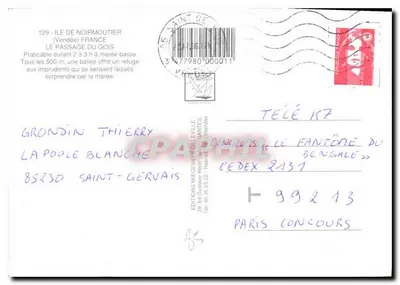 129 - ILE DE NOIRMOUTIER
(Vendée) FRANCE
LE PASSAGE DU GOIS
Praticable durant 2 à 3 h à marée basse.
Tous les 500 m, une balise offre un refuge
aux imprudents qui se seraient laissés
surprendre par la marée.
85 SAINT GE
3 477980 000011
GRONDIN THIERRY
LA POULE BLANCHE
85230 SAINT-GERVAIS
TÉLÉ K7
CONCOURS "LE FANTÔME DU
BENGALE"
CEDEX 2131
99213
PARIS CONCOURS
CPARAMA